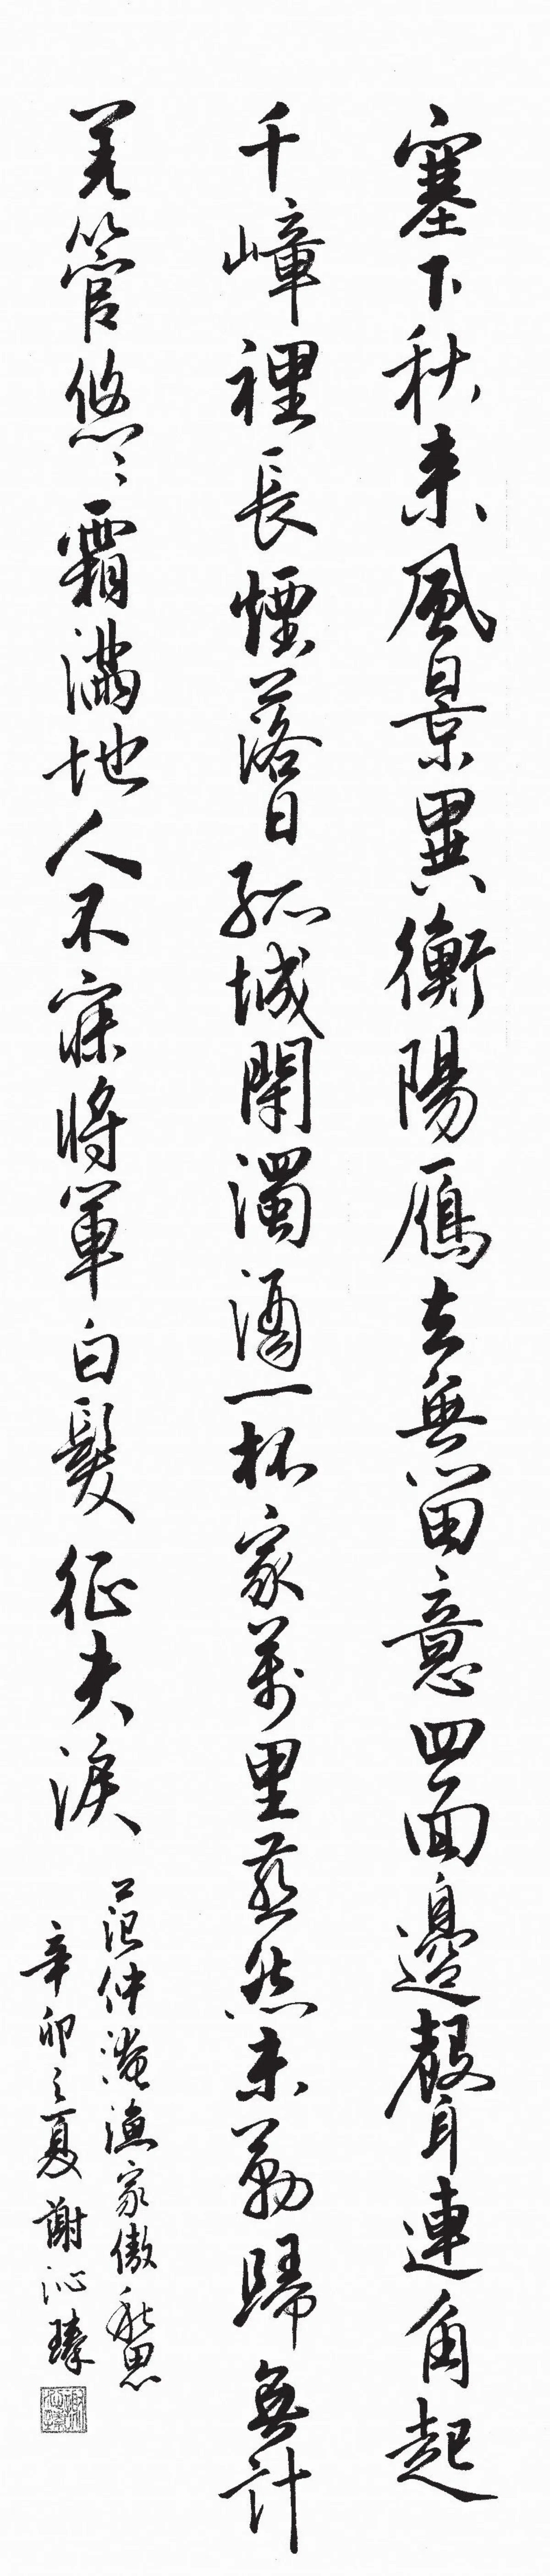 塞下秋来風景異衡陽鴈去無留意四面邊聲連角起
千嶂裡長煙落日孤城閉濁酒一杯家萬里燕然未勒歸無計
羌管悠〻霜滿地人不寐將軍白髮征夫淚
范仲淹漁家傲秋思
辛卯之夏謝沁臻